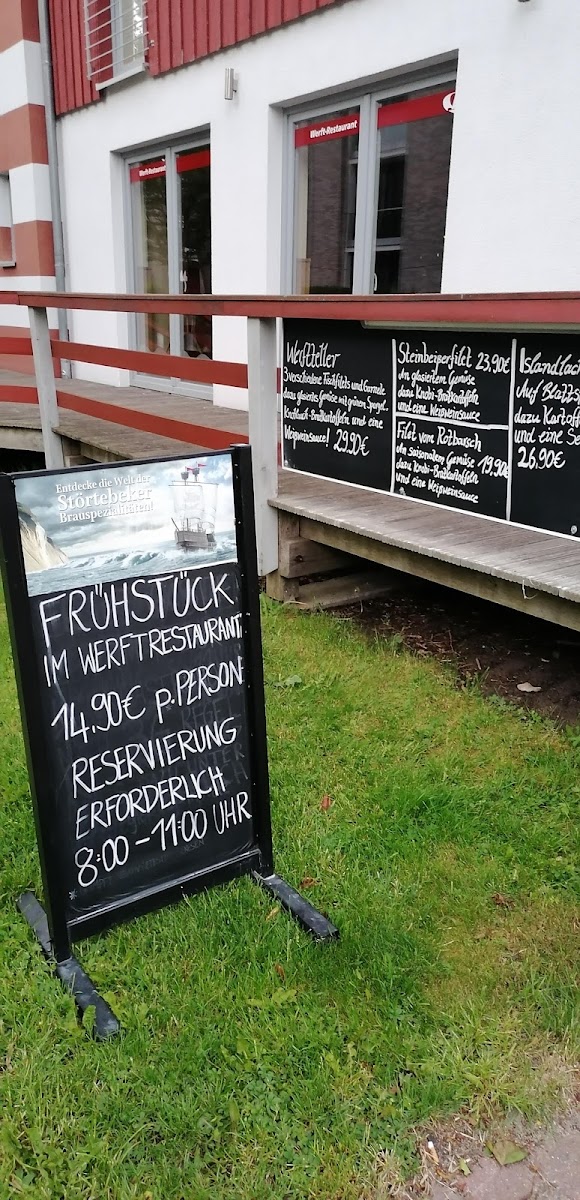 Werft-Restaurant
Werft-Restaurant
Werftteller
3 verschiedene Fischfilets und Garnele
dazu glasiertes Gemüse mit grünem Spargel
Knoblauch-Bratkartoffeln und eine
Weißweinsauce! 29.90€
Steinbeißerfilet 23,90€
An glasiertem Gemüse
dazu Knobi-Bratkartoffeln
und eine Weißweinsauce
Filet vom Rotbarsch
An saisonalem Gemüse 19,90€
dazu Knobi-Bratkartoffeln
und eine Weißweinsauce
Islandlach
Auf Blatts
dazu Kartoff
und eine Se
26,90€
Entdecke die Welt der
Störtebeker
Brauspezialitäten!
FRÜHSTÜCK
IM WERFTRESTAURANT
14.90€ p. PERSON
RESERVIERUNG
ERFORDERLICH
8:00-11:00 UHR